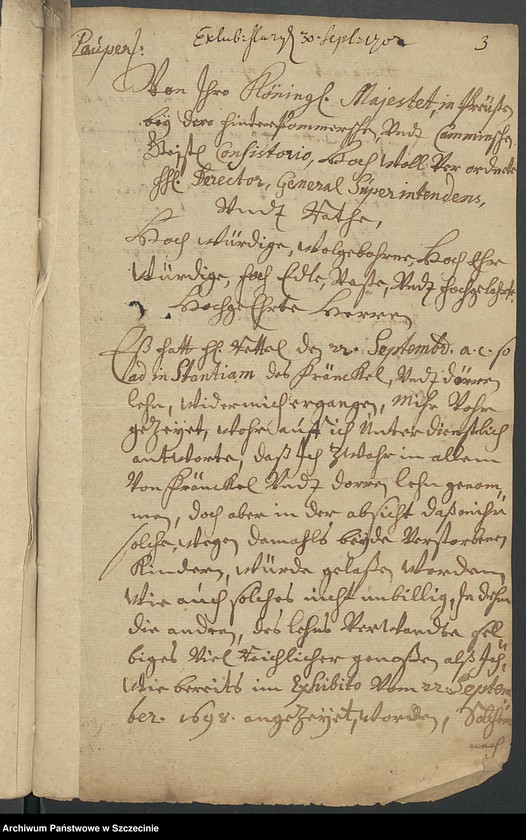 Pauper.
Exhib: Starg. 30. Sept: 1702
3
Von Ihro Königl. Majestet, in Preüßen
beÿ dero hinter Pommersche, Undt Camminsche
Consistorio, Hoch Woll Verordnete
HH. Derector, General Süperintendens,
Undt Rathe,
Hoch würdige, Wolgebohrne, Hoch Ehr
würdige, Hoch Edle, Veste, Undt Hochgelahrte
Hochge Ehrte Herren
Eß hatt H. den 22. Septembr. a. c. so
ad inStantiam des Fränckel, Undt dörren
lehn, wider mich ergangen, Mihr Vohr
gezeyet, wohr auff ich Unterdienstlich
antworte, daß Ich zwahr in allem
Von Fränckel Undt dorren lehn genom,
men, doch aber in der absicht daß mich
solche, wegen damahls beÿde Verstorbenen
Kindern, würde gelaßen worden,
Wie auch solches nicht unbillig, In dehm
die andren, des lehns Verwandte sel,
biges Viel Reichlicher genoßen alß Ich,
Wie bereits im Exhibito Vom 22. Septem
ber. 1698. angezeyet, worden,
nach
Archiwum Państwowe w Szczecinie